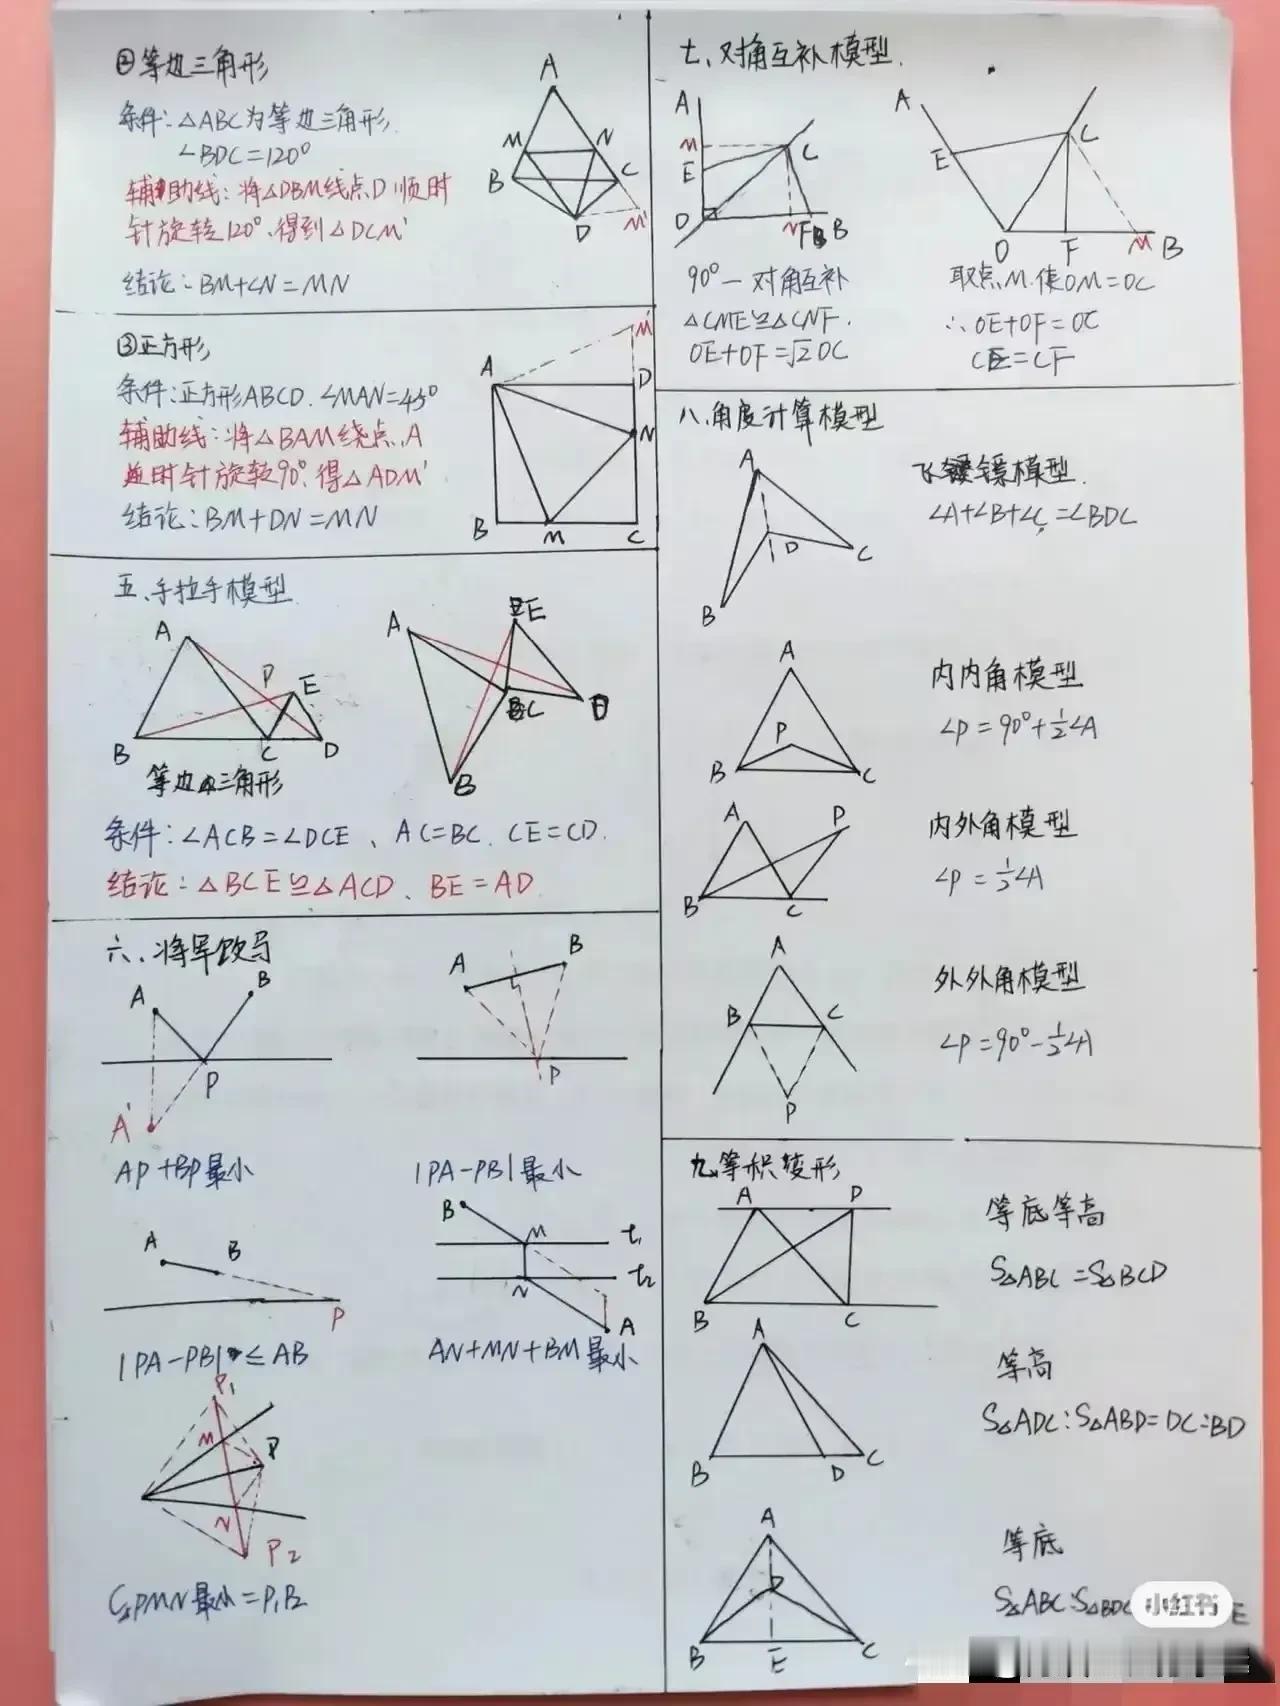 ②等边三角形
条件:△ABC为等边三角形
∠BDC=120°
辅助线:将△DBM线点D顺时
针旋转120°,得到△DCM'
结论:BM+CN=MN
A
M
N
B
C
D
M'
③正方形
条件:正方形ABCD.∠MAN=45°
辅助线:将△BAM绕点A
逆时针旋转90°,得△ADM'
结论:BM+DN=MN
M'
A
D
N
B
M
C
五、手拉手模型
A
P
E
B
C
D
等边三角形
A
E
C
D
B
条件:∠ACB=∠DCE、AC=BC.CE=CD.
结论:△BCE≌△ACD、BE=AD
六、将军饮马
A
B
P
A'
AP+BP最小
A
B
P
|PA-PB|最小
A
B
P
|PA-PB|≤AB
B
M
t₁
N
t₂
A
AN+MN+BM最小
P₁
M
P
N
P₂
C△PMN最小=P₁P₂
七、对角互补模型
A
M
E
C
O
N
F
B
90°一对角互补
△CME≌△CNF.
OE+OF=√2OC
A
E
C
O
F
M
B
取点M.使OM=OC
∴OE+OF=OC
CE=CF
八.角度计算模型
A
D
C
B
飞镖模型
∠A+∠B+∠C=∠BDC
A
P
B
C
内内角模型
∠P=90°+½∠A
A
P
B
C
内外角模型
∠P=½∠A
A
B
C
P
外外角模型
∠P=90°-½∠A
九等积变形
A
D
B
C
等底等高
S△ABC=S△BCD
A
B
D
C
等高
S△ADC:S△ABD=DC:BD
A
D
B
E
C
等底
S△ABC:S△BDC
E
小红书